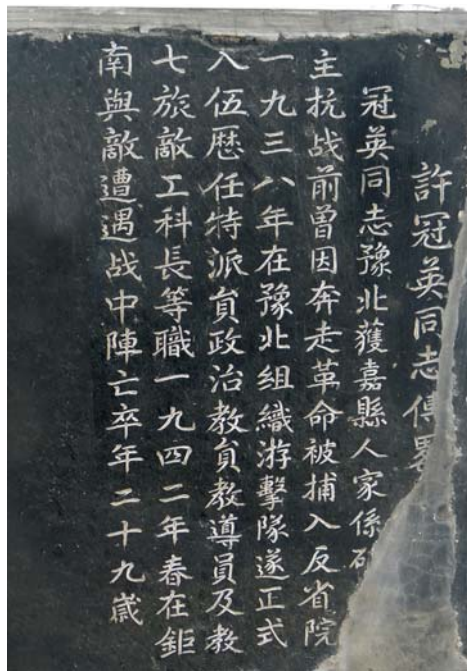 許冠英同志傳畧
冠英同志豫北獲嘉縣人家係破
主抗战前曾因奔走革命被捕入反省院
一九三八年在豫北组織游擊隊遂正式
入伍歷任特派員政治教員教導員及教
七旅敵工科長等職一九四二年春在鉅
南與敵遭遇战中陣亡卒年二十九歲